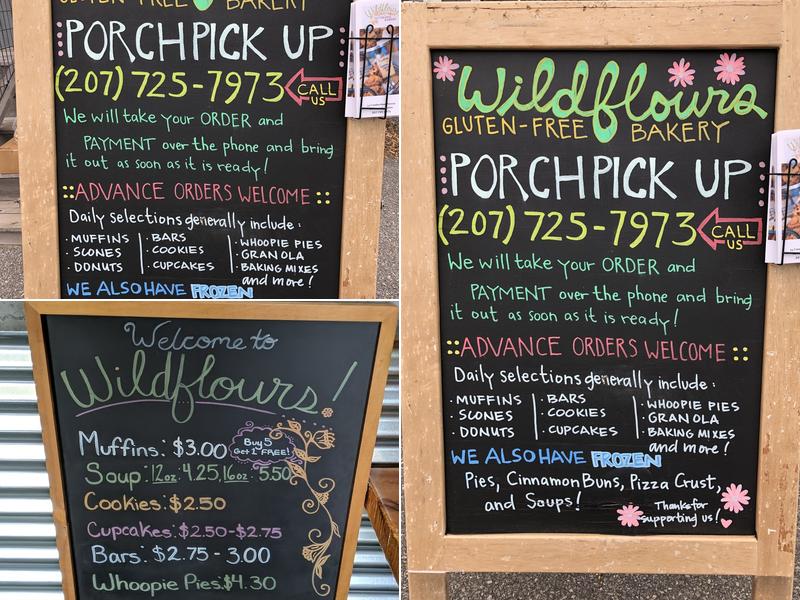 GLUTEN-FREE BAKERY
PORCH PICK UP
(207) 725-7973
CALL US
We will take your ORDER and
PAYMENT over the phone and bring
it out as soon as it is ready!
ADVANCE ORDERS WELCOME
Daily selections generally include:
· MUFFINS · BARS · WHOOPIE PIES
· SCONES · COOKIES · GRANOLA
· DONUTS · CUPCAKES · BAKING MIXES
and more!
WE ALSO HAVE FROZEN
Welcome to
Wildflours!
Muffins: $3.00
Buy 5
Get 1 FREE!
Soup: 12oz 4.25, 16oz 5.50
Cookies: $2.50
Cupcakes: $2.50-$2.75
Bars: $2.75 - 3.00
Whoopie Pies: $4.30
Wildflours
GLUTEN-FREE BAKERY
PORCH PICK UP
(207) 725-7973
CALL US
We will take your ORDER and
PAYMENT over the phone and bring
it out as soon as it is ready!
ADVANCE ORDERS WELCOME
Daily selections generally include:
· MUFFINS · BARS · WHOOPIE PIES
· SCONES · COOKIES · GRANOLA
· DONUTS · CUPCAKES · BAKING MIXES
and more!
WE ALSO HAVE FROZEN
Pies, Cinnamon Buns, Pizza Crust,
and Soups!
Thanks for
supporting us!